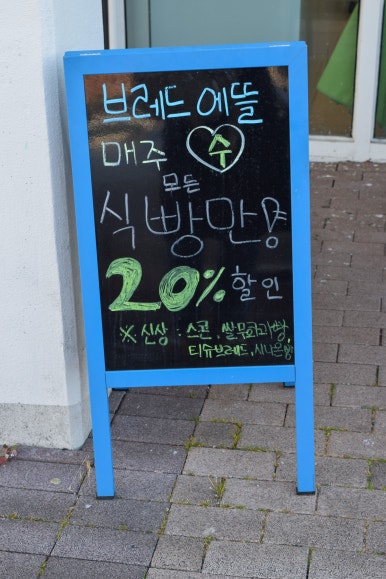 브레드 에뜰
매주 수
모든
식빵만
20% 할인
※신상 : 스콘, 쌀무화과빵,
티슈브레드, 시나몬빵